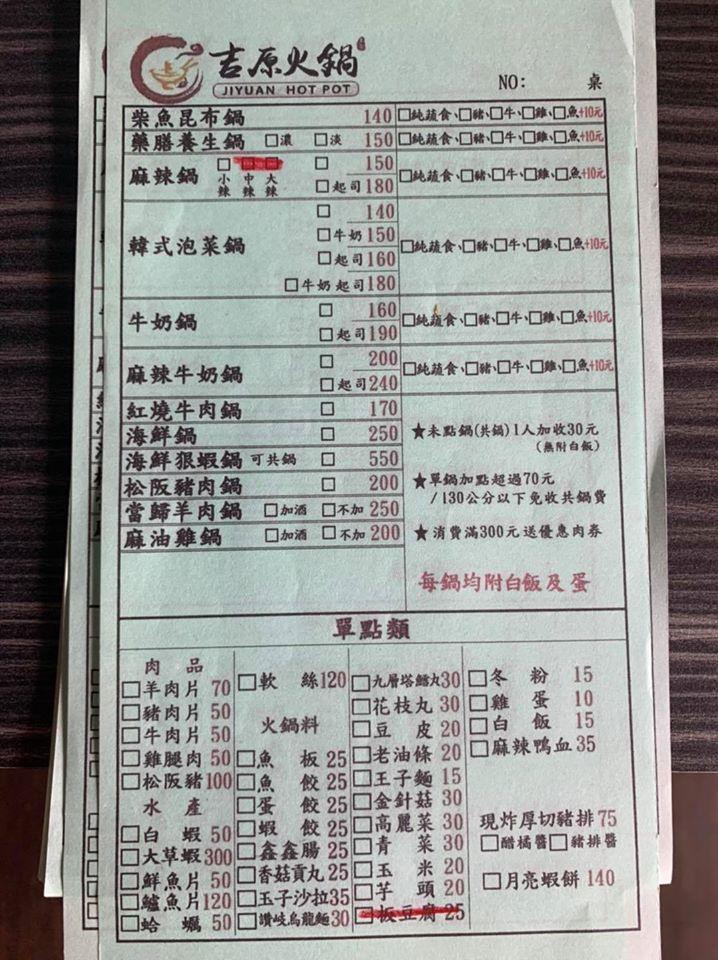 吉原火鍋
JIYUAN HOT POT
NO: 桌
柴魚昆布鍋 140 □純蔬食、□豬、□牛、□雞、□魚+10元
藥膳養生鍋 □濃 □淡 150 □純蔬食、□豬、□牛、□雞、□魚+10元
麻辣鍋 □小辣 □中辣 □大辣 □ 150 □純蔬食、□豬、□牛、□雞、□魚+10元
□起司180
韓式泡菜鍋 □純蔬食、□豬、□牛、□雞、□魚+10元
□ 140
□牛奶150
□起司160
□牛奶起司180
牛奶鍋 □ 160 □純蔬食、□豬、□牛、□雞、□魚+10元
□起司190
麻辣牛奶鍋 □ 200 □純蔬食、□豬、□牛、□雞、□魚+10元
□起司240
紅燒牛肉鍋 □ 170
海鮮鍋 □ 250
海鮮狠蝦鍋 可共鍋 □ 550
松阪豬肉鍋 □ 200
當歸羊肉鍋 □加酒 □不加 250
麻油雞鍋 □加酒 □不加 200
★未點鍋(共鍋)1人加收30元
(無附白飯)
★單鍋加點超過70元
/130公分以下免收共鍋費
★消費滿300元送優惠肉券
每鍋均附白飯及蛋
單點類
肉品
□羊肉片 70
□豬肉片 50
□牛肉片 50
□雞腿肉 50
□松阪豬100
水產
□白蝦 50
□大草蝦300
□鮮魚片 50
□鱸魚片120
□蛤蠣 50
□軟絲120
火鍋料
□魚板 25
□魚餃 25
□蛋餃 25
□蝦餃 25
□鑫鑫腸 25
□香菇貢丸 25
□玉子沙拉35
□讚岐烏龍麵30
□九層塔鱈丸30
□花枝丸 30
□豆皮 20
□老油條 20
□王子麵 15
□金針菇 30
□高麗菜 30
□青菜 30
□玉米 20
□芋頭 20
□板豆腐 25
□冬粉 15
□雞蛋 10
□白飯 15
□麻辣鴨血 35
現炸厚切豬排 75
□醋橘醬□豬排醬
□月亮蝦餅 140